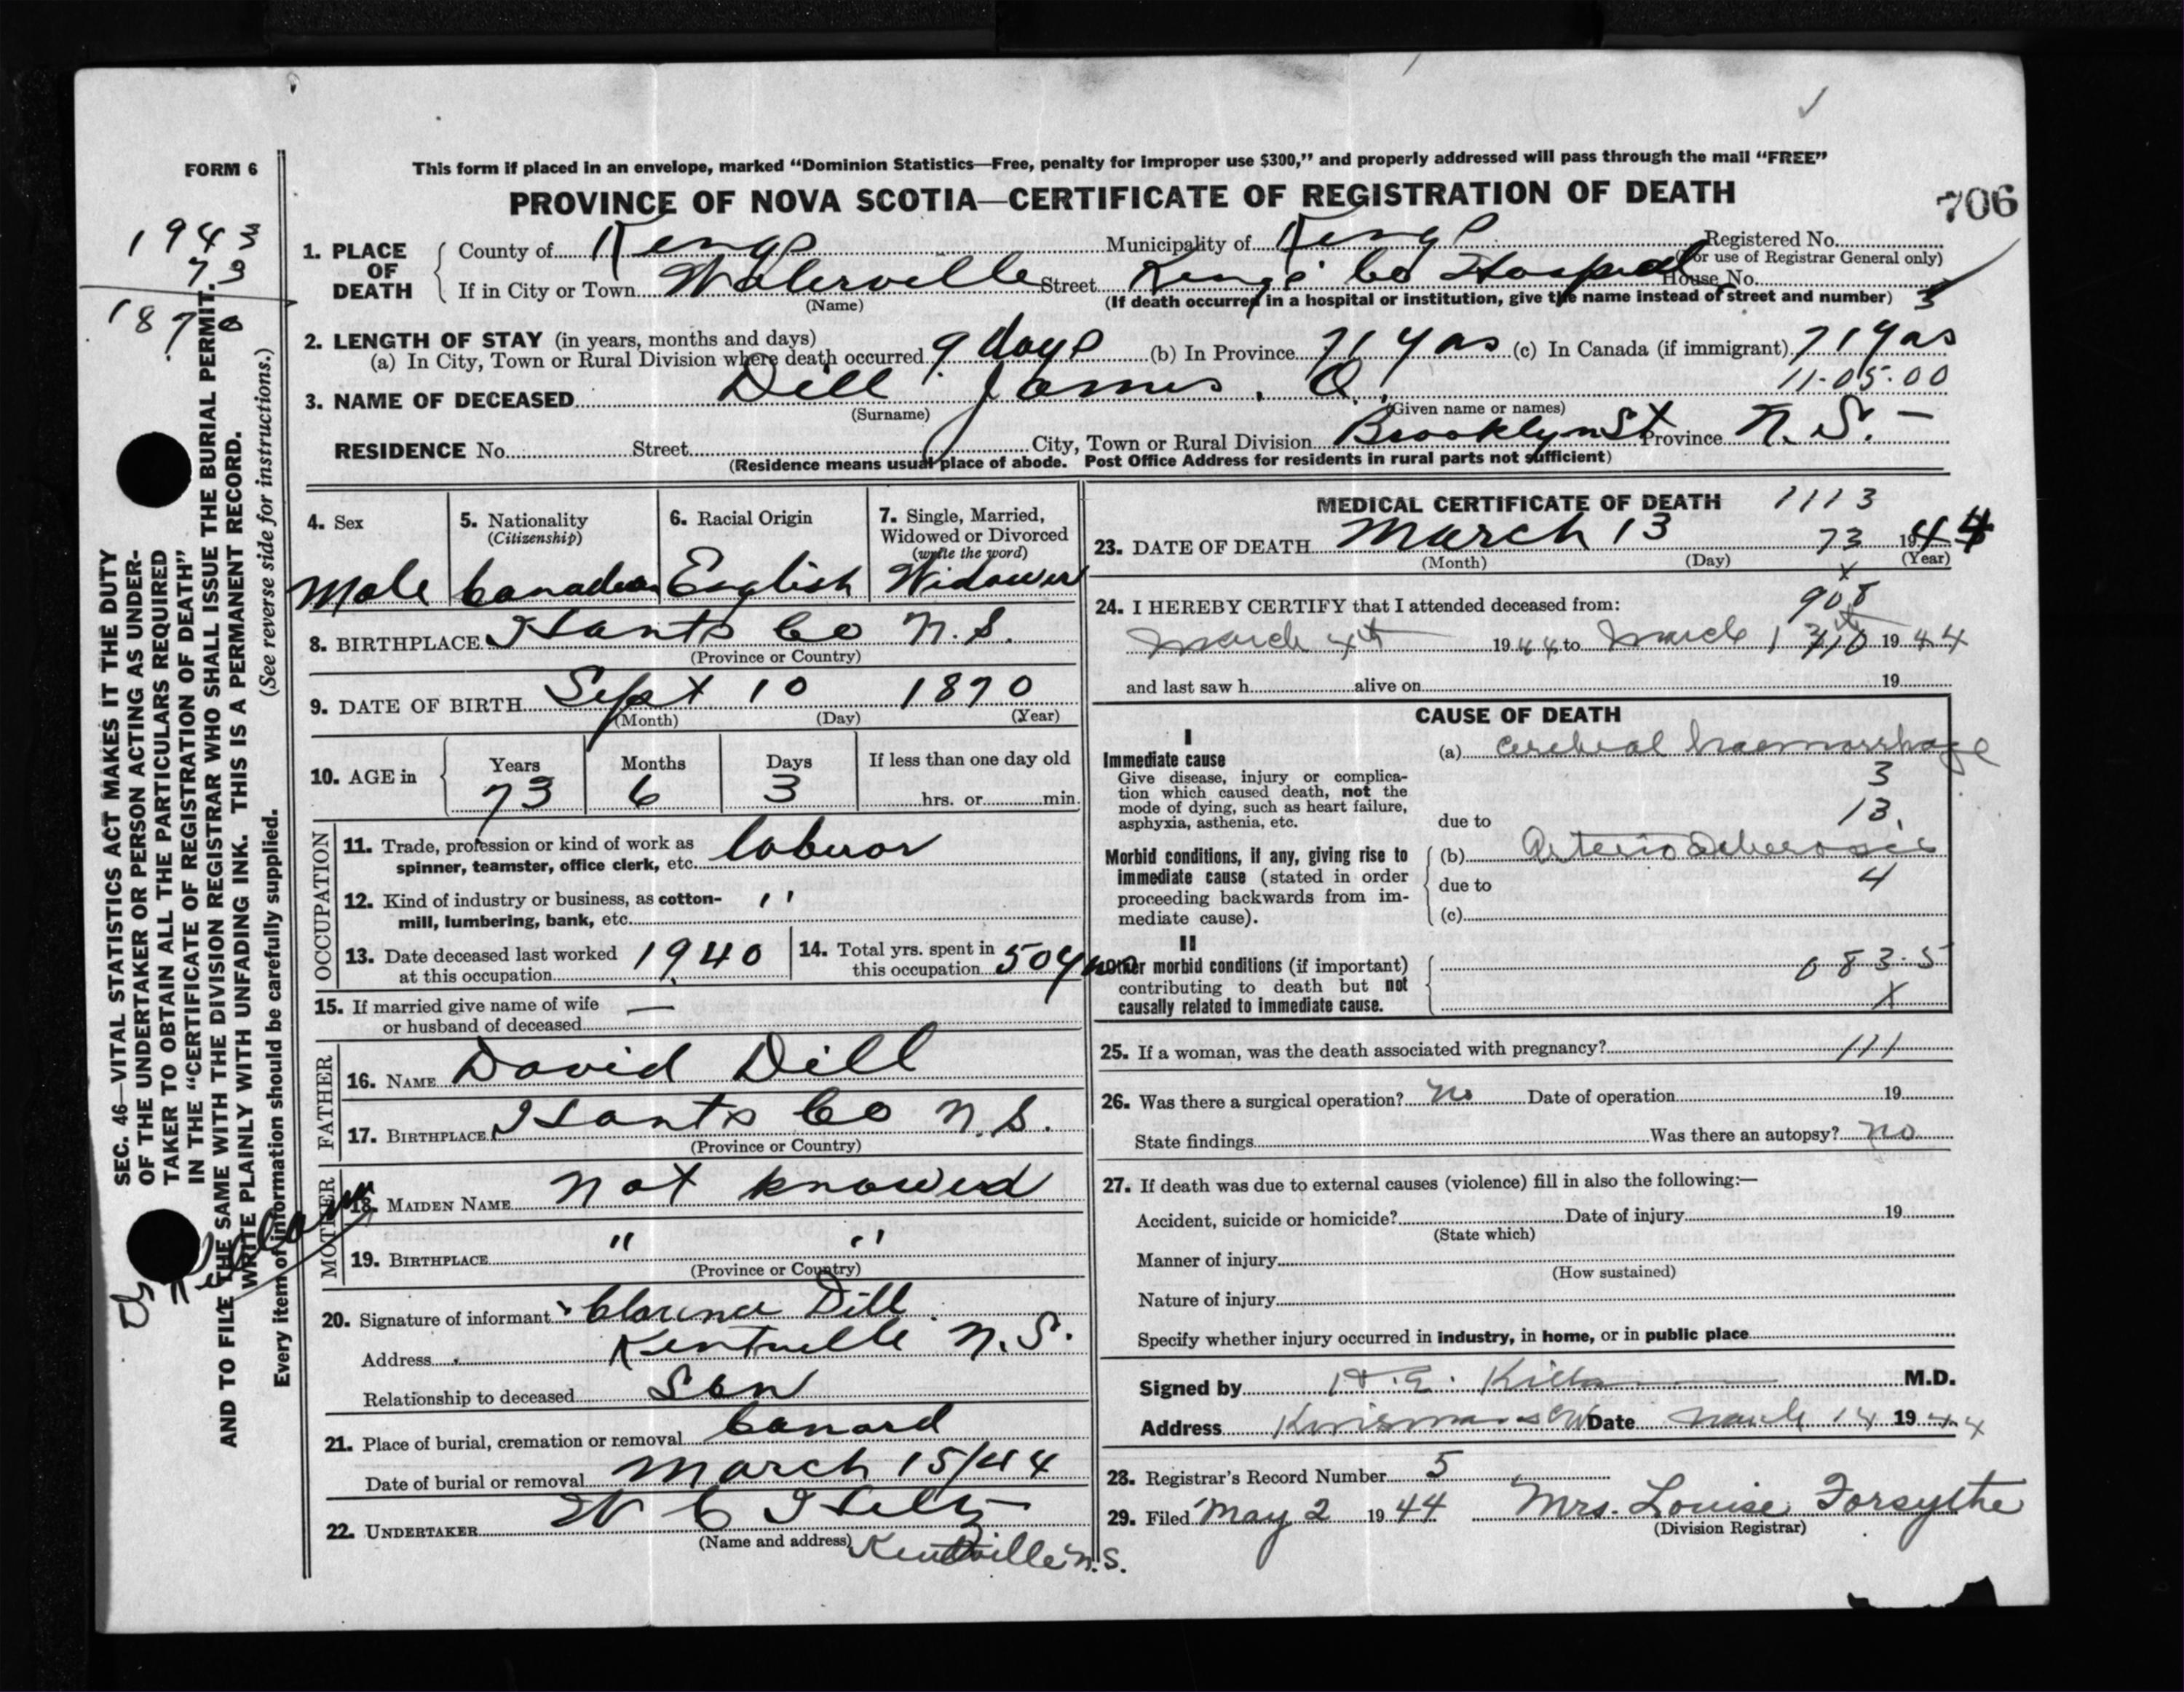 This form if placed in an envelope, marked "Dominion Statistics—Free, penalty for improper use $300," and properly addressed will pass through the mail "FREE"
FORM 6
PROVINCE OF NOVA SCOTIA—CERTIFICATE OF REGISTRATION OF DEATH
706
1943
73
1870
SEC. 46—VITAL STATISTICS ACT MAKES IT THE DUTY
OF THE UNDERTAKER OR PERSON ACTING AS UNDER-
TAKER TO OBTAIN ALL THE PARTICULARS REQUIRED
IN THE "CERTIFICATE OF REGISTRATION OF DEATH"
AND TO FILE THE SAME WITH THE DIVISION REGISTRAR WHO SHALL ISSUE THE BURIAL PERMIT.
WRITE PLAINLY WITH UNFADING INK. THIS IS A PERMANENT RECORD.
(See reverse side for instructions.)
Every item of information should be carefully supplied.
1. PLACE OF DEATH
County of Kings Municipality of Kings Registered No.
(For use of Registrar General only)
If in City or Town Waterville Street Kings Co Hospital House No.
(Name) (If death occurred in a hospital or institution, give the name instead of street and number) 3
2. LENGTH OF STAY (in years, months and days)
(a) In City, Town or Rural Division where death occurred 9 days (b) In Province 71 yrs (c) In Canada (if immigrant) 71 yrs
11-05-00
3. NAME OF DECEASED Dill James. O.
(Surname) (Given name or names)
RESIDENCE No. Street City, Town or Rural Division Brooklyn St Province N. S. —
(Residence means usual place of abode. Post Office Address for residents in rural parts not sufficient)
4. Sex
Male
5. Nationality
(Citizenship)
Canadian
6. Racial Origin
English
7. Single, Married,
Widowed or Divorced
(write the word)
Widower
8. BIRTHPLACE Hants Co N.S.
(Province or Country)
9. DATE OF BIRTH Sept 10 1870
(Month) (Day) (Year)
10. AGE in Years Months Days If less than one day old
73 6 3 hrs. or min.
OCCUPATION
11. Trade, profession or kind of work as
spinner, teamster, office clerk, etc. labuor
12. Kind of industry or business, as cotton-
mill, lumbering, bank, etc. "
13. Date deceased last worked
at this occupation 1940
14. Total yrs. spent in
this occupation 50 yrs
15. If married give name of wife
or husband of deceased —
FATHER
16. NAME David Dill
17. BIRTHPLACE Hants Co N.S.
(Province or Country)
MOTHER
18. MAIDEN NAME not knowed
19. BIRTHPLACE " "
(Province or Country)
20. Signature of informant Clarence Dill
Address Kentville N.S.
Relationship to deceased Son
21. Place of burial, cremation or removal Canard
Date of burial or removal March 15/44
22. UNDERTAKER W C
(Name and address) Kentville N.S.
MEDICAL CERTIFICATE OF DEATH 1113
23. DATE OF DEATH March 13 73 1944
(Month) (Day) (Year)
x
908
24. I HEREBY CERTIFY that I attended deceased from:
March 4th 1944 to March 13th 1944
710
and last saw h alive on 19
CAUSE OF DEATH
I
Immediate cause
Give disease, injury or complica-
tion which caused death, not the
mode of dying, such as heart failure,
asphyxia, asthenia, etc.
(a) cerebral haemorrhage
3
13.
due to
Morbid conditions, if any, giving rise to
immediate cause (stated in order
proceeding backwards from im-
mediate cause).
(b) Arterio Sclerosis
due to 4
(c)
II
Other morbid conditions (if important)
contributing to death but not
causally related to immediate cause.
083.5
X
25. If a woman, was the death associated with pregnancy? 111
26. Was there a surgical operation? No Date of operation 19
State findings Was there an autopsy? no
27. If death was due to external causes (violence) fill in also the following:—
Accident, suicide or homicide? Date of injury 19
(State which)
Manner of injury
(How sustained)
Nature of injury
Specify whether injury occurred in industry, in home, or in public place
Signed by M.D.
Address Date March 14 1944
28. Registrar's Record Number 5
29. Filed May 2 1944 Mrs. Louise Forsythe
(Division Registrar)